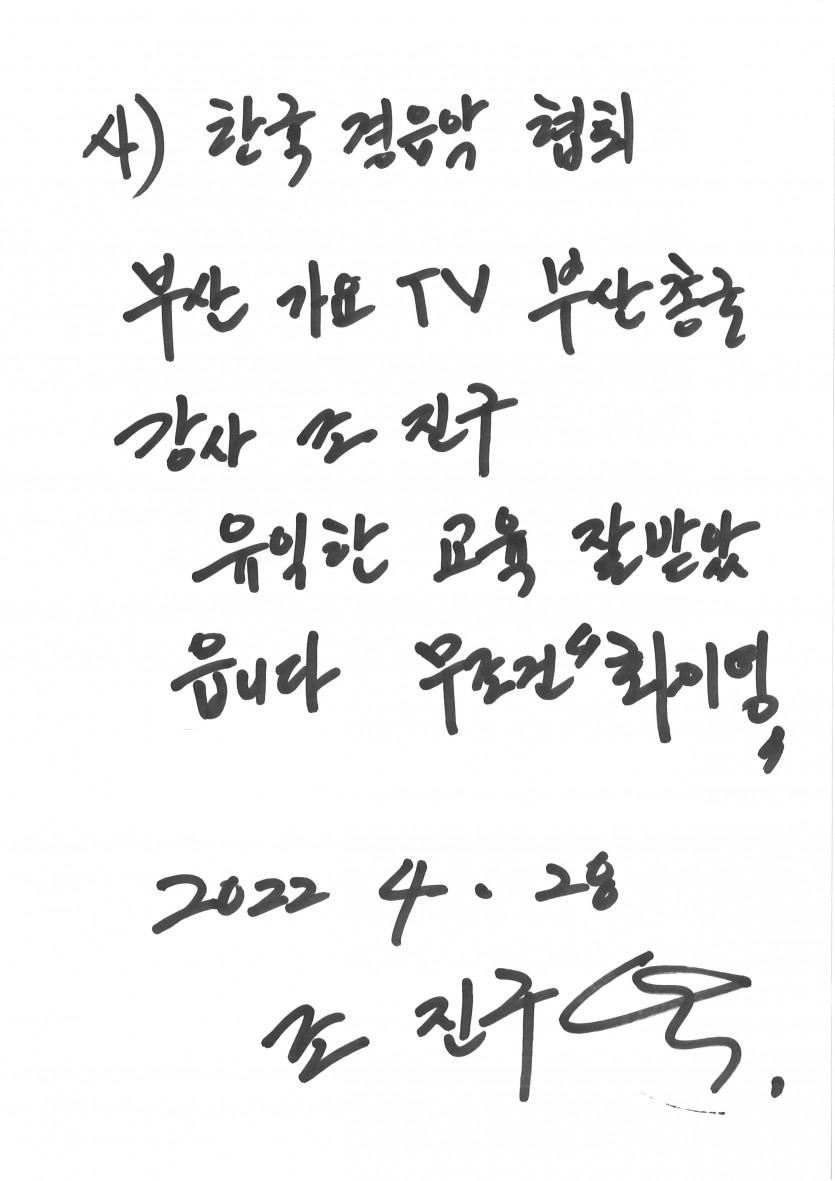 사) 한국 경음악 협회
부산 가요 TV 부산총국
강사 조 진구
유익한 교육 잘받았
읍니다 무조건 "화이링"
2022 4. 28
조 진구